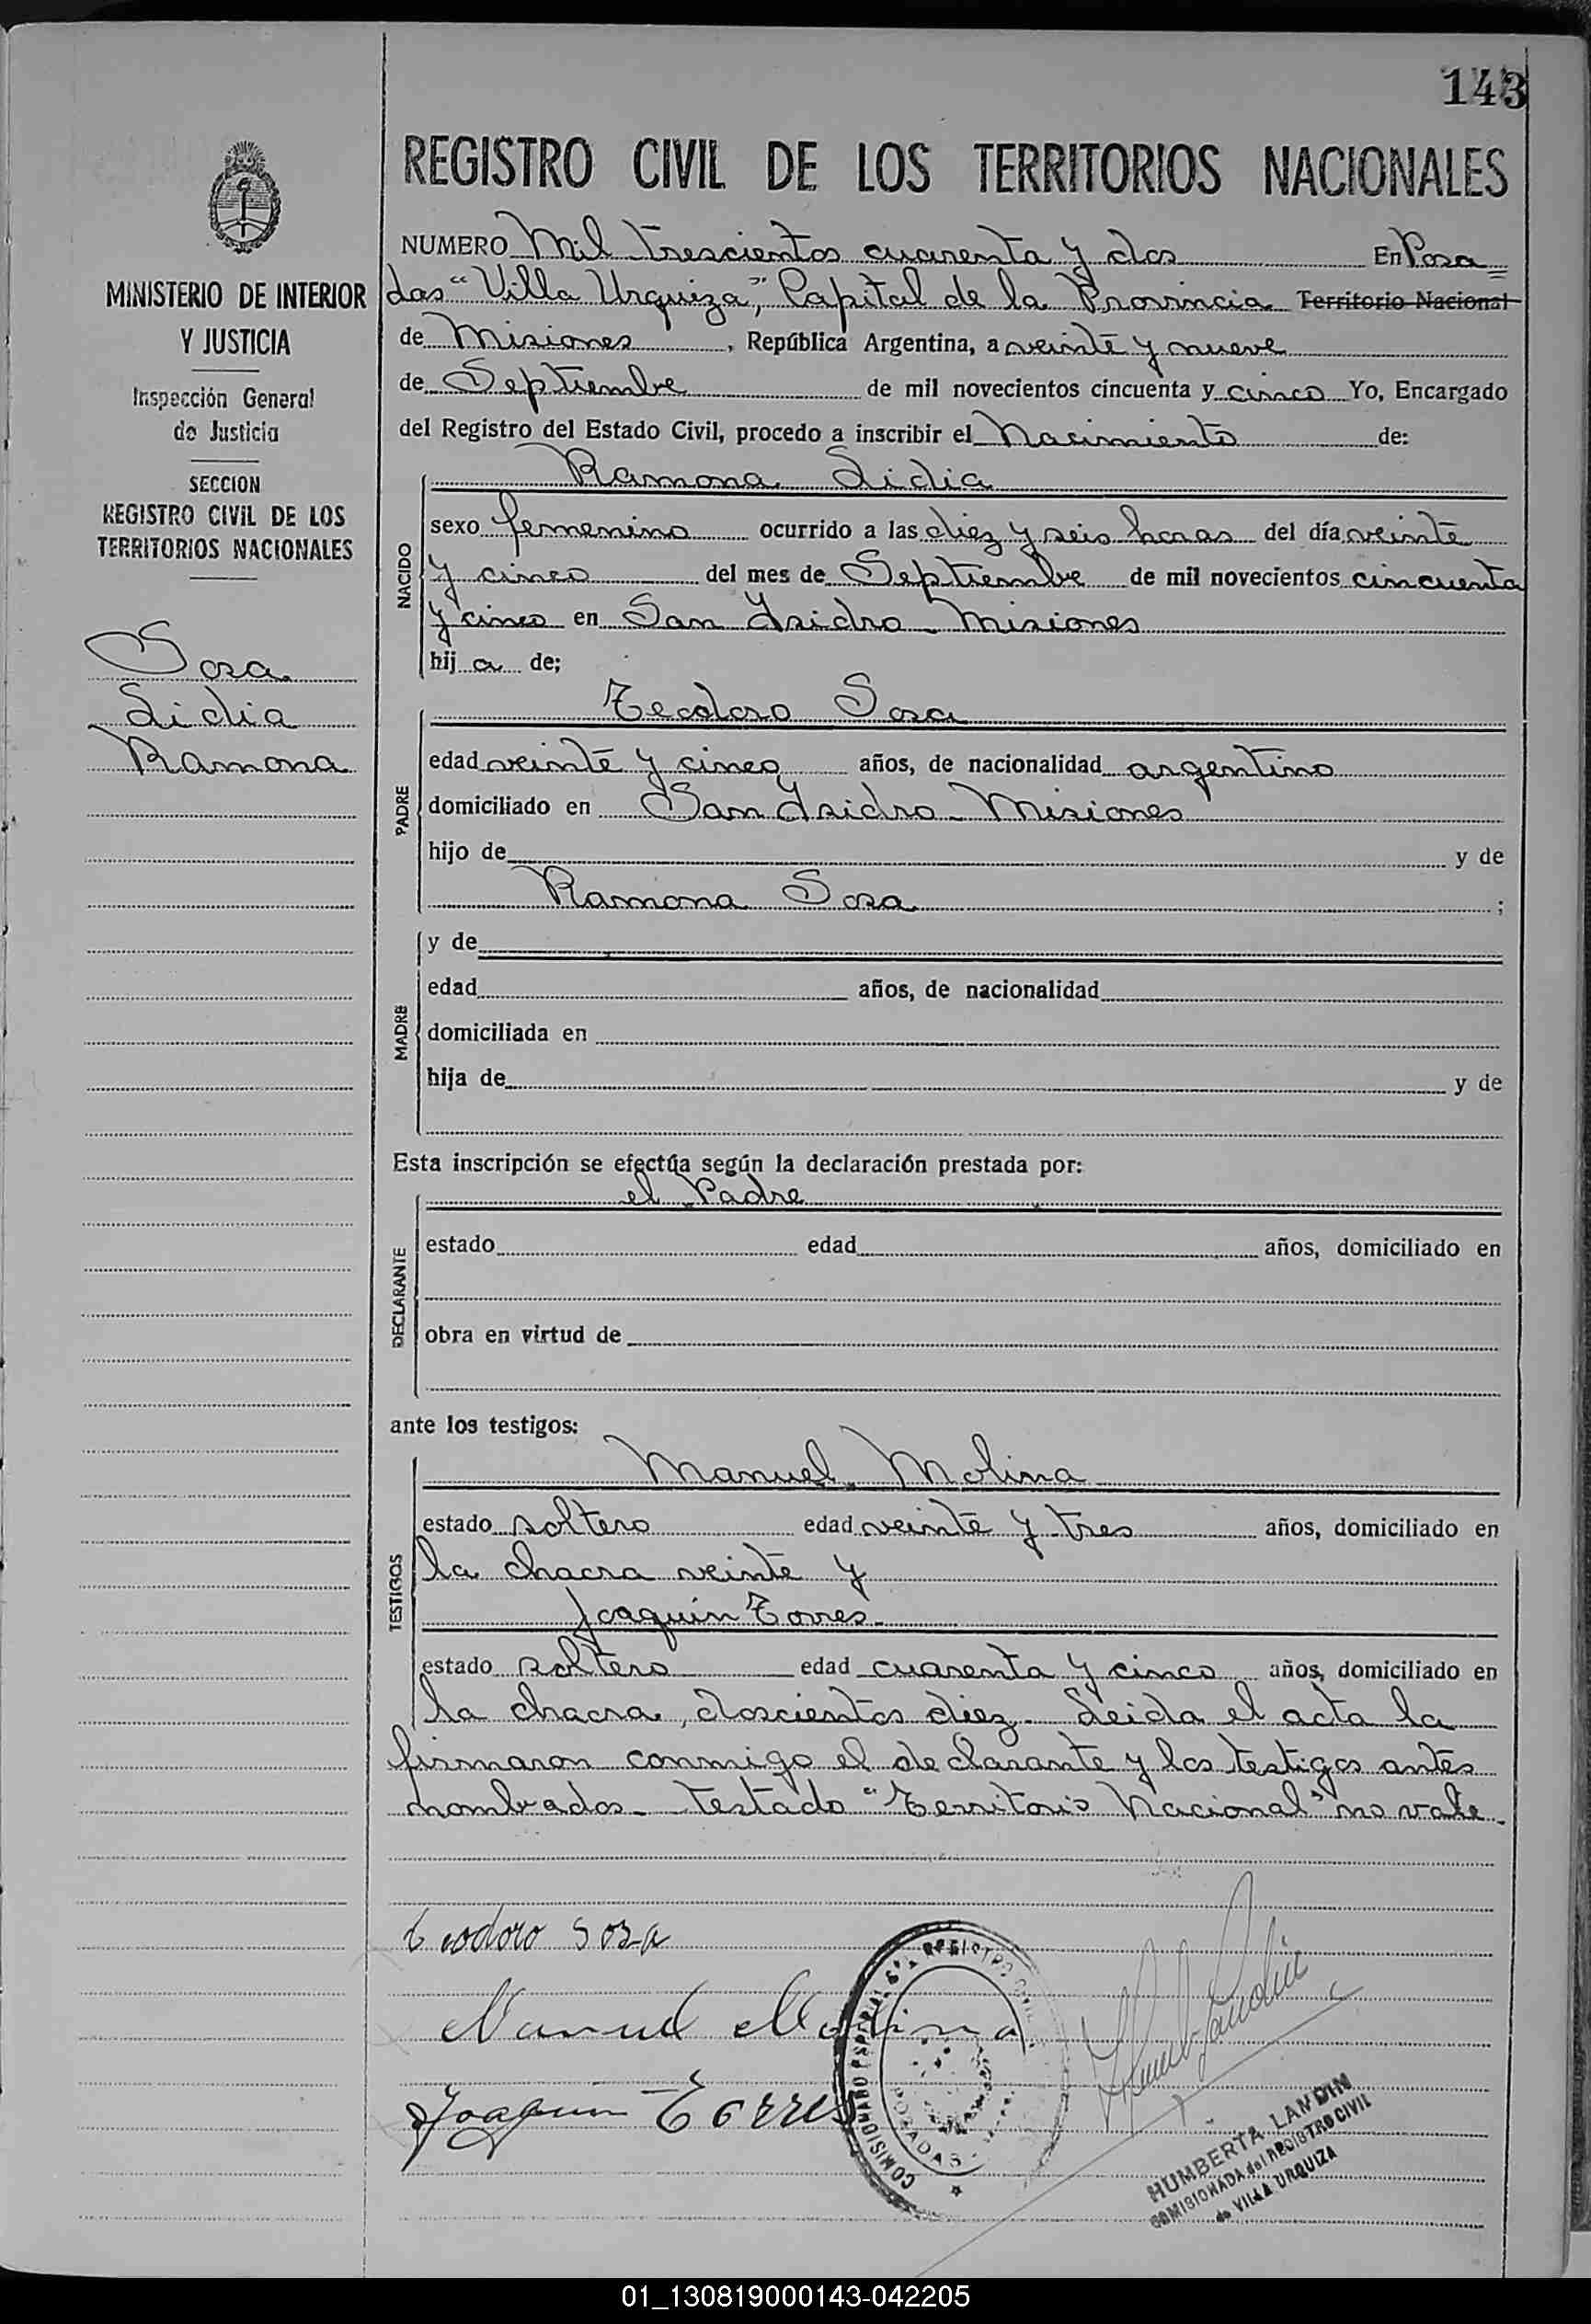 143
REGISTRO CIVIL DE LOS TERRITORIOS NACIONALES
MINISTERIO DE INTERIOR
Y JUSTICIA
Inspección General
de Justicia
SECCION
REGISTRO CIVIL DE LOS
TERRITORIOS NACIONALES
Sosa
Lidia
Ramona
NUMERO Mil trescientos cuarenta y dos En Posa=
das "Villa Urquiza", Capital de la Provincia Territorio Nacional
de Misiones, República Argentina, a veinte y nueve
de Septiembre de mil novecientos cincuenta y cinco Yo, Encargado
del Registro del Estado Civil, procedo a inscribir el Nacimiento de:
Ramona Lidia
NACIDO
sexo femenino ocurrido a las diez y seis horas del día veinte
y cinco del mes de Septiembre de mil novecientos cincuenta
y cinco en San Isidro - Misiones
hij a de;
Teodoro Sosa
PADRE
edad veinte y cinco años, de nacionalidad argentino
domiciliado en San Isidro - Misiones
hijo de y de
Ramona Sosa ;
MADRE
y de
edad años, de nacionalidad
domiciliada en
hija de y de
Esta inscripción se efectúa según la declaración prestada por:
el Padre
DECLARANTE
estado edad años, domiciliado en
obra en virtud de
ante los testigos:
Manuel Molina
TESTIGOS
estado soltero edad veinte y tres años, domiciliado en
la chacra veinte y
Joaquin Torres-
estado soltero edad cuarenta y cinco años, domiciliado en
la chacra, doscientos diez- Leida el acta la
firmaron conmigo el declarante y los testigos antes
nombrados- Testado "Territorio Nacional" no vale-
teodoro sosa
Manuel Molina
Joaquin Torres
COMISIONADO ESPECIAL REGISTRO CIVIL
POSADAS
HUMBERTA LANDIN
COMISIONADA del REGISTRO CIVIL
de VILLA URQUIZA
01_130819000143-042205